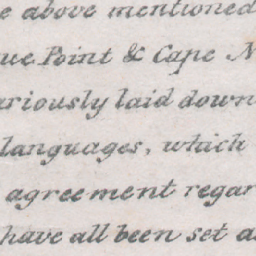 e above mentioned
ue Point & Cape N
ariously laid down
languages, which
agreement regar
have all been set a